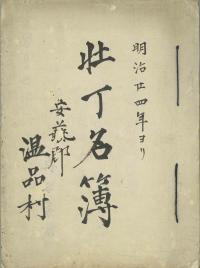 明治廿四年ヨリ
壮丁名簿
安藝郡
温品村